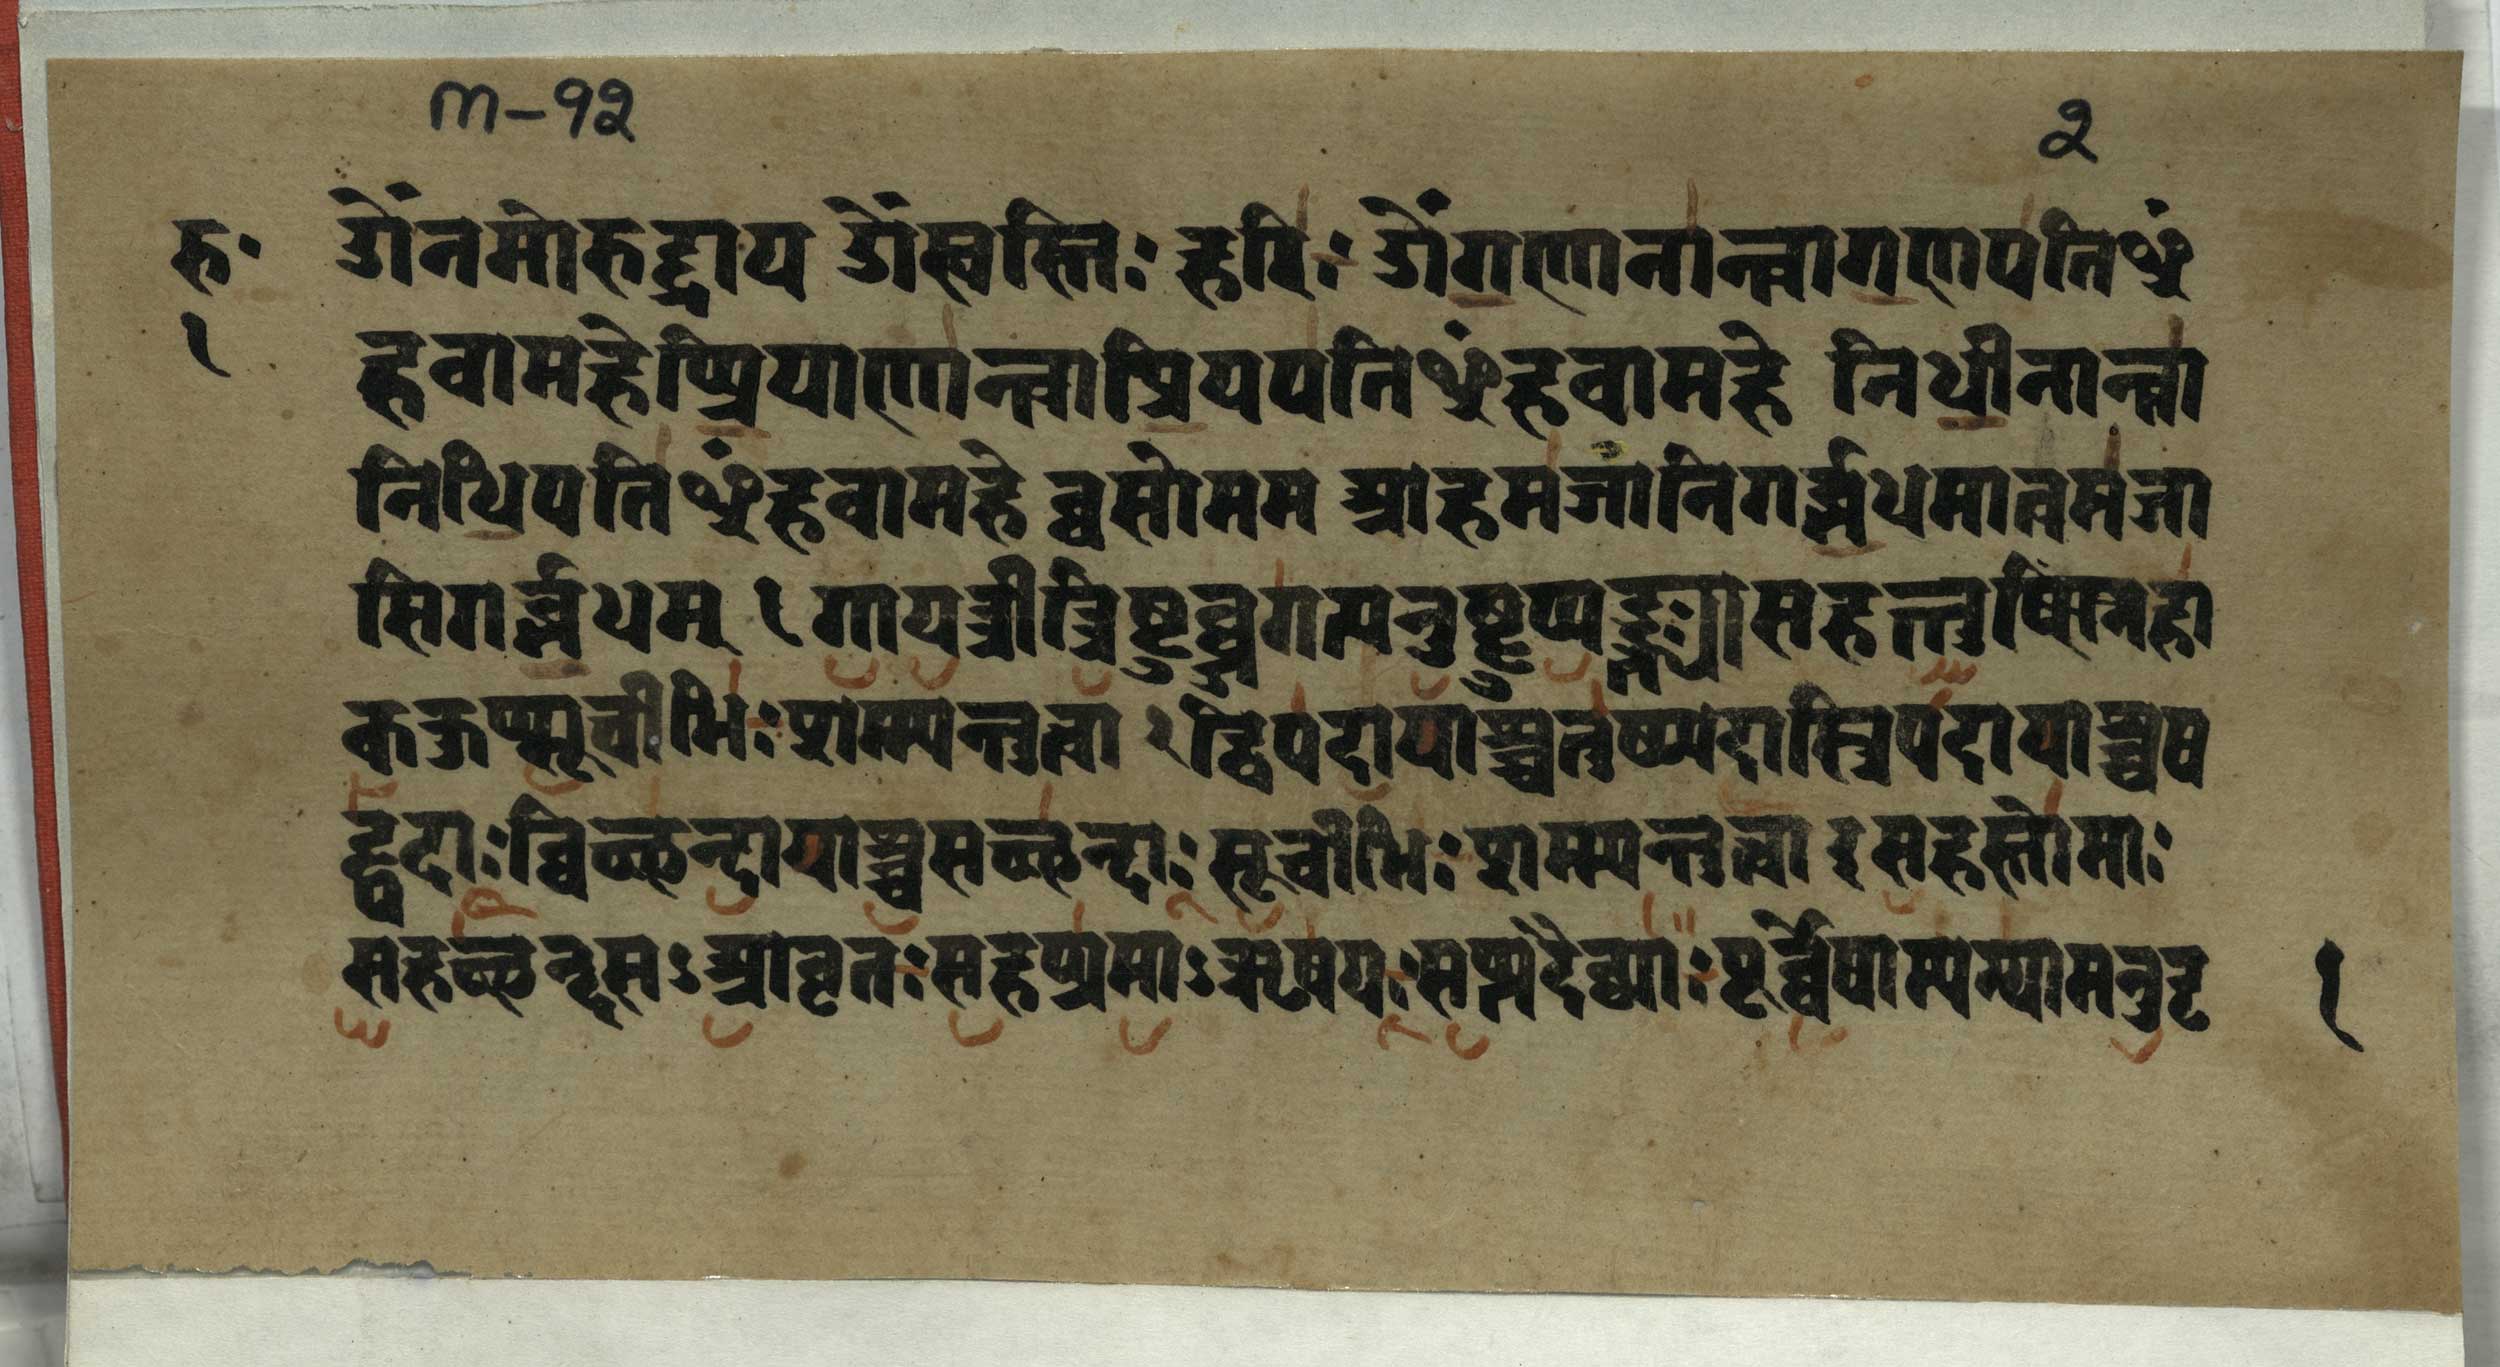 m-१२
२
रु॰ ॐनमोरुद्राय ॐस्वस्तिः हरिः ॐगणानान्त्वागणपतिꣳ
१ हवामहेप्प्रियाणान्त्वाप्रियपतिꣳहवामहे निधीनान्त्वा
निधिपतिꣳहवामहे व्वसोमम आहमजानिगर्ब्भधमात्वमजा
सिगर्ब्भधम् १ गायत्रीत्रिष्टुब्जगत्यनुष्टुप्पङ्क्त्यासहबृहत्युष्णिहा
ककुप्प्सूचीभिःशम्म्यन्तुत्वा २ द्विपदायाश्चतुष्प्पदास्त्रिपदायाश्चष
ट्पदाःव्विच्छन्दायाश्चसच्छन्दाःसूचीभिःशम्म्यन्तुत्वा ३ सहस्तोमाः
सहच्छन्दसऽआवृतःसहप्प्रमाऽऋषयःसप्प्तदैव्याःपूर्व्वेषाम्पन्थामनुदृ
१